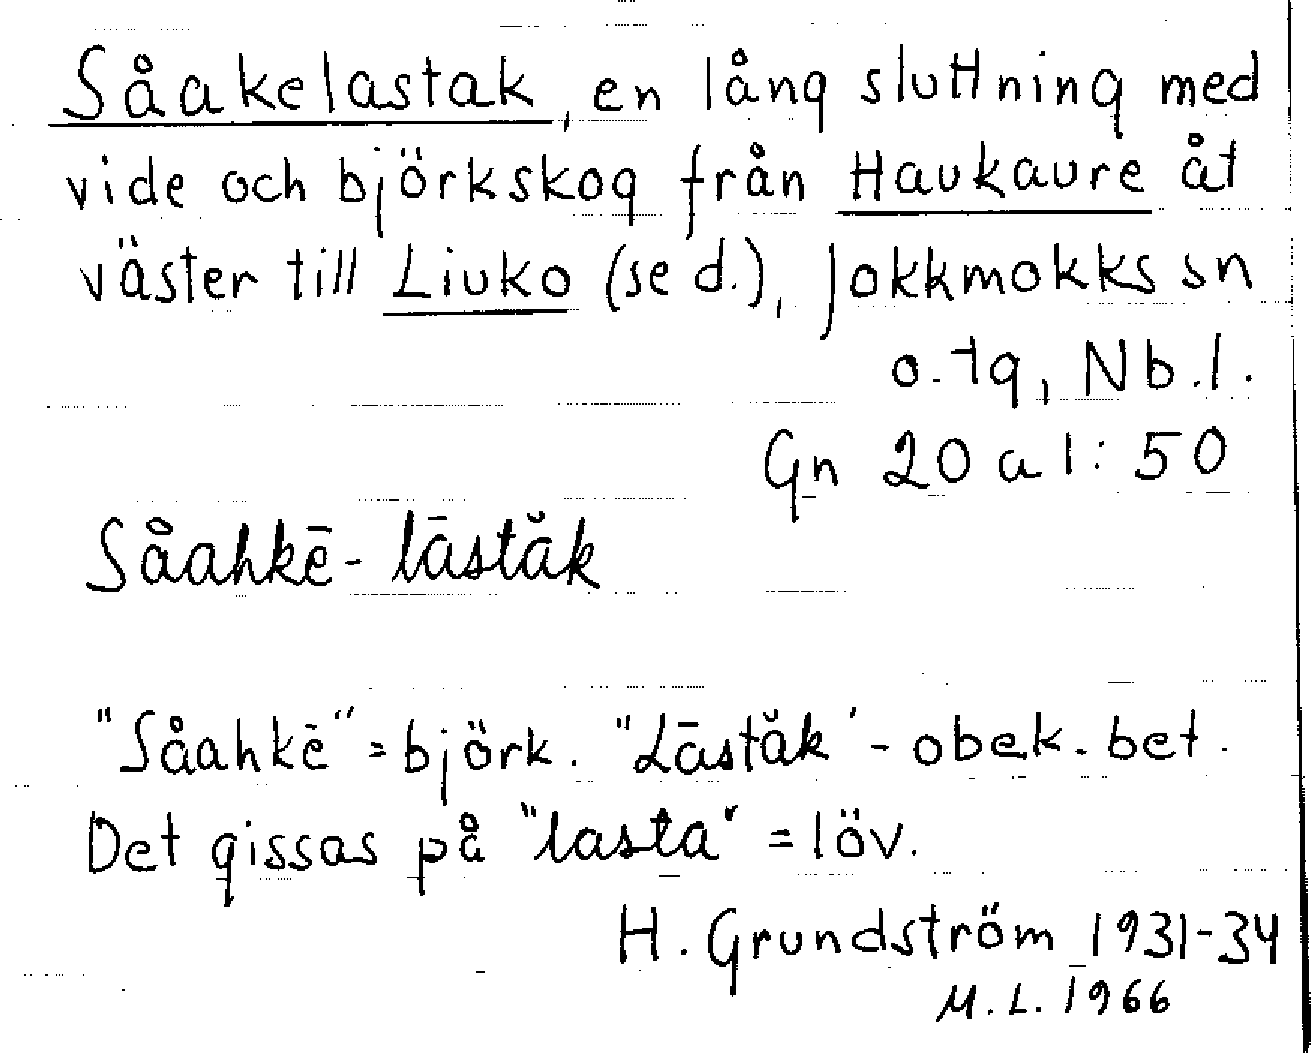 Såakelastak, en lång sluttning med
vide och björkskog från Haukaure åt
väster till Liuko (se d.), Jokkmokks sn
o. tg, Nb. l.
Gn 20 a 1:50
Såahkē-lāstăk
"Såahkē" = björk. "Lāstăk" - obek. bet.
Det gissas på "lasta" = löv.
H. Grundström 1931-34
M. L. 1966